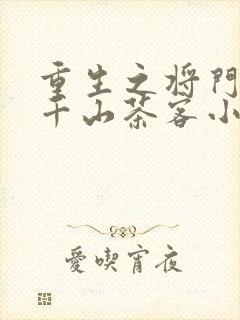 重生之将門
千山茶客小
愛喫宵夜